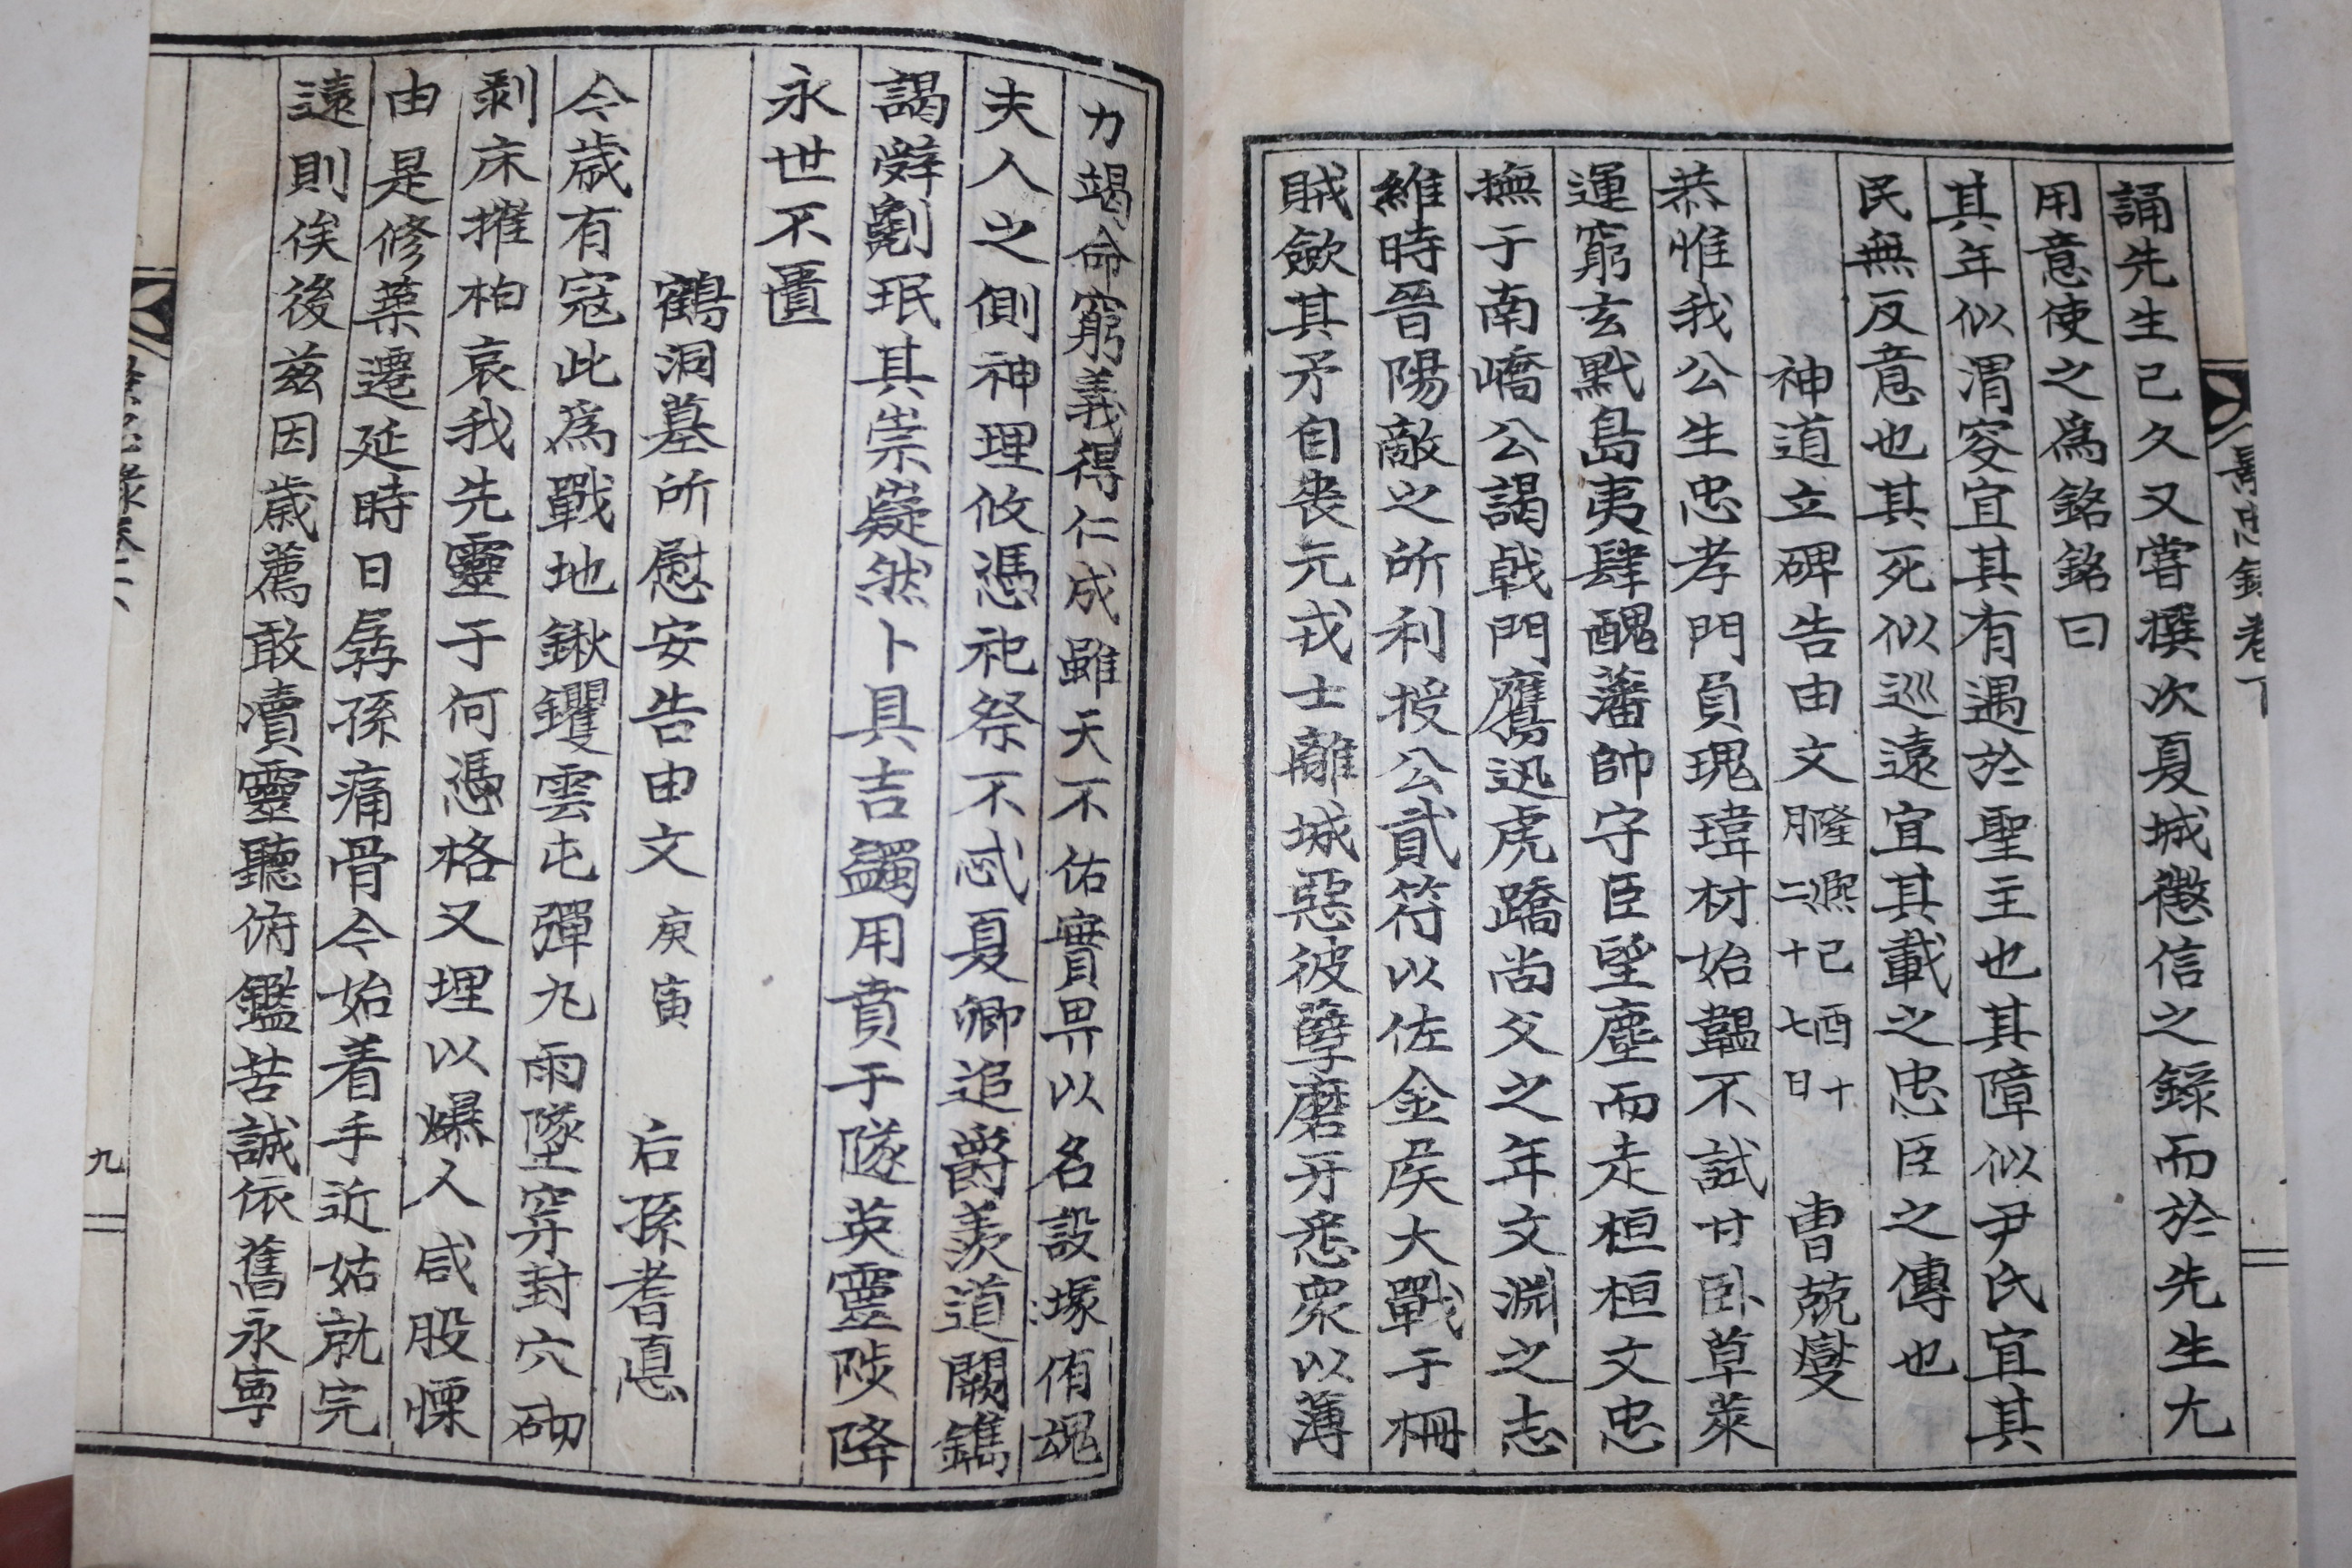 誦先生已久又嘗撰次夏城懲信之錄而於先生尤
用意使之爲銘銘曰
其年似渭叜宜其有遇於聖主也其障似尹氏宜其
民無反意也其死似巡遠宜其載之忠臣之傳也
神道立碑告由文 隆熙己酉十二月十七日 曺兢燮
恭惟我公生忠孝門負瑰瑋材始韞不試甘卧草萊
運窮玄默島夷肆醜藩帥守臣望塵而走桓桓文忠
撫于南嶠公謁戟門鷹迅虎蹻尚父之年文淵之志
維時晉陽敵之所利授公貳符以佐金矦大戰于柵
賊歛其矛自喪元戎士離城惡彼孽磨牙悉衆以薄
力竭命窮義得仁成雖天不佑實畀以名設塚侑魂
夫人之側神理攸憑祀祭不忒夏卿追爵羨道闕鐫
謁辭劖珉其崇嶷然卜具吉蠲用賁于隧英靈陟降
永世不匱
鶴洞墓所慰安告由文 庚寅 后孫耆悳
今歲有寇此爲戰地鍬钁雲屯彈丸雨墜穽封穴砌
剥床摧柏哀我先靈于何憑格又埋以爆人咸股慄
由是修葉遷延時日孱孫痛骨今始着手近姑就完
遠則俟後茲因歲薦敢瀆靈聽俯鑑苦誠依舊永寧
九